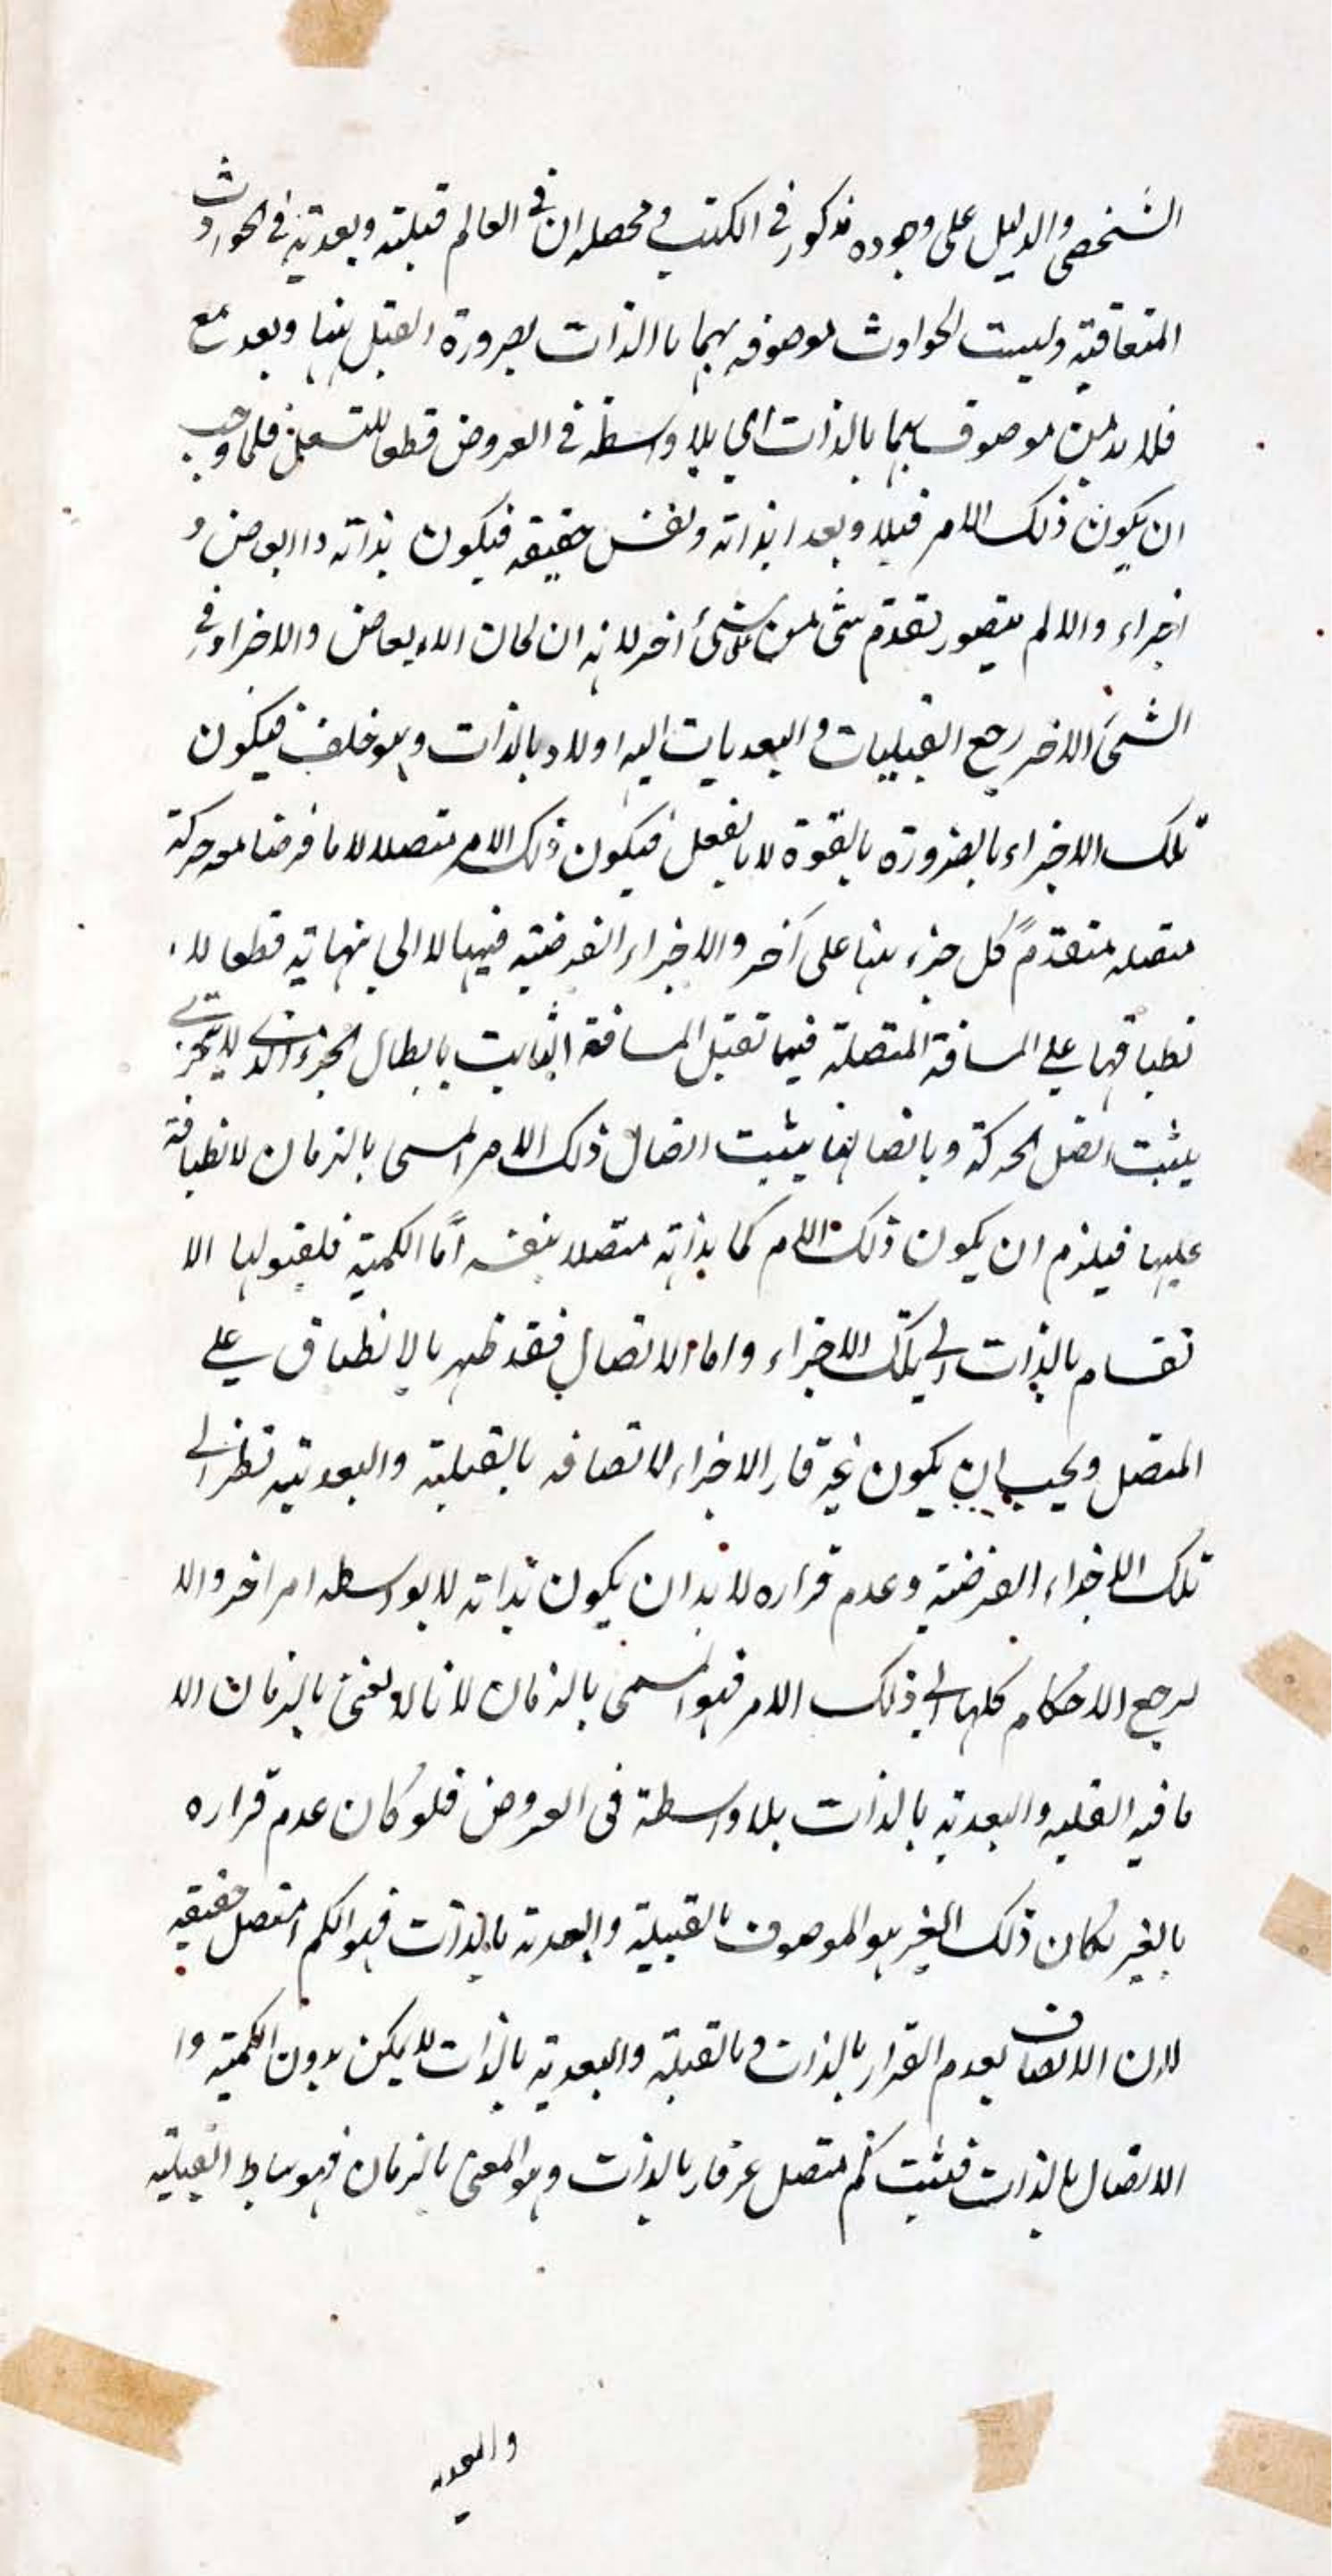 الشخصي والدليل على وجوده مذكور في الكتب ومحصله ان في العالم قبلية وبعدية في الحوادث
المتعاقبة وليست الحوادث موصوفه بهما بالذات لصرورة القبل منها وبعد مع
فلا بد من موصوف بهما بالذات اي بلا واسطة في العروض قطعا للتسلسل فلما وجب
ان يكون ذلك الامر قبلا وبعدا بذاته ونفس حقيقه فيكون بذاته ذا ابعاض و
اجزاء والا لم يتصور تقدم شئ من على شئ اخر لانه ان كان الابعاض والاجزاء في
الشئ الاخر رجع القبليات والبعديات اليه اولا وبالذات وهو خلف فيكون
تلك الاجزاء بالضرورة بالقوة لا بالفعل فيكون ذلك الامر متصلا لانا فرضنا معه حركة
متصله متقدم كل جزء منها على آخر والاجزاء الفرضية فيها لا الى نهاية قطعا لا
نطباقها على المسافة المتصلة فيما تقبل المسافة الثابت بابطال الجزء الذي لا يتجزى
يثبت اتصل الحركة وباتصالها يثبت اتصال ذلك الامر المسمى بالزمان لانطباقه
عليها فيلزم ان يكون ذلك الامر كما بذاته متصلا بنفسه امّا الكمية فلقبولها الا
نقسام بالذات الى تلك الاجزاء واما الاتصال فقد ظهر بالانطباق على
المتصل ويجب ان يكون غير قار الاجزاء لاتصافه بالقبلية والبعدية نظرا الى
تلك الاجزاء الفرضية وعدم قراره لا بد ان يكون بذاته لا بواسطه امر اخر والا
لرجع الاحكام كلها الى ذلك الامر فهو المسمى بالزمان لانا لا نعنى بالزمان الا
ما فيه القبليه والبعدية بالذات بلا واسطة فى العروض فلو كان عدم قراره
بالغير لكان ذلك الغير هو الموصوف بالقبيلية والبعدية بالذات فهو الكم المتصل حقيقه
لان الاتصاف بعدم القرار بالذات وبالقبلية والبعدية بالذات لا يمكن بدون الكمية وا
الاتصال بالذات فثبت كم متصل غير قار بالذات وهو المعنى بالزمان فهو مناط القبلية
والبعديه